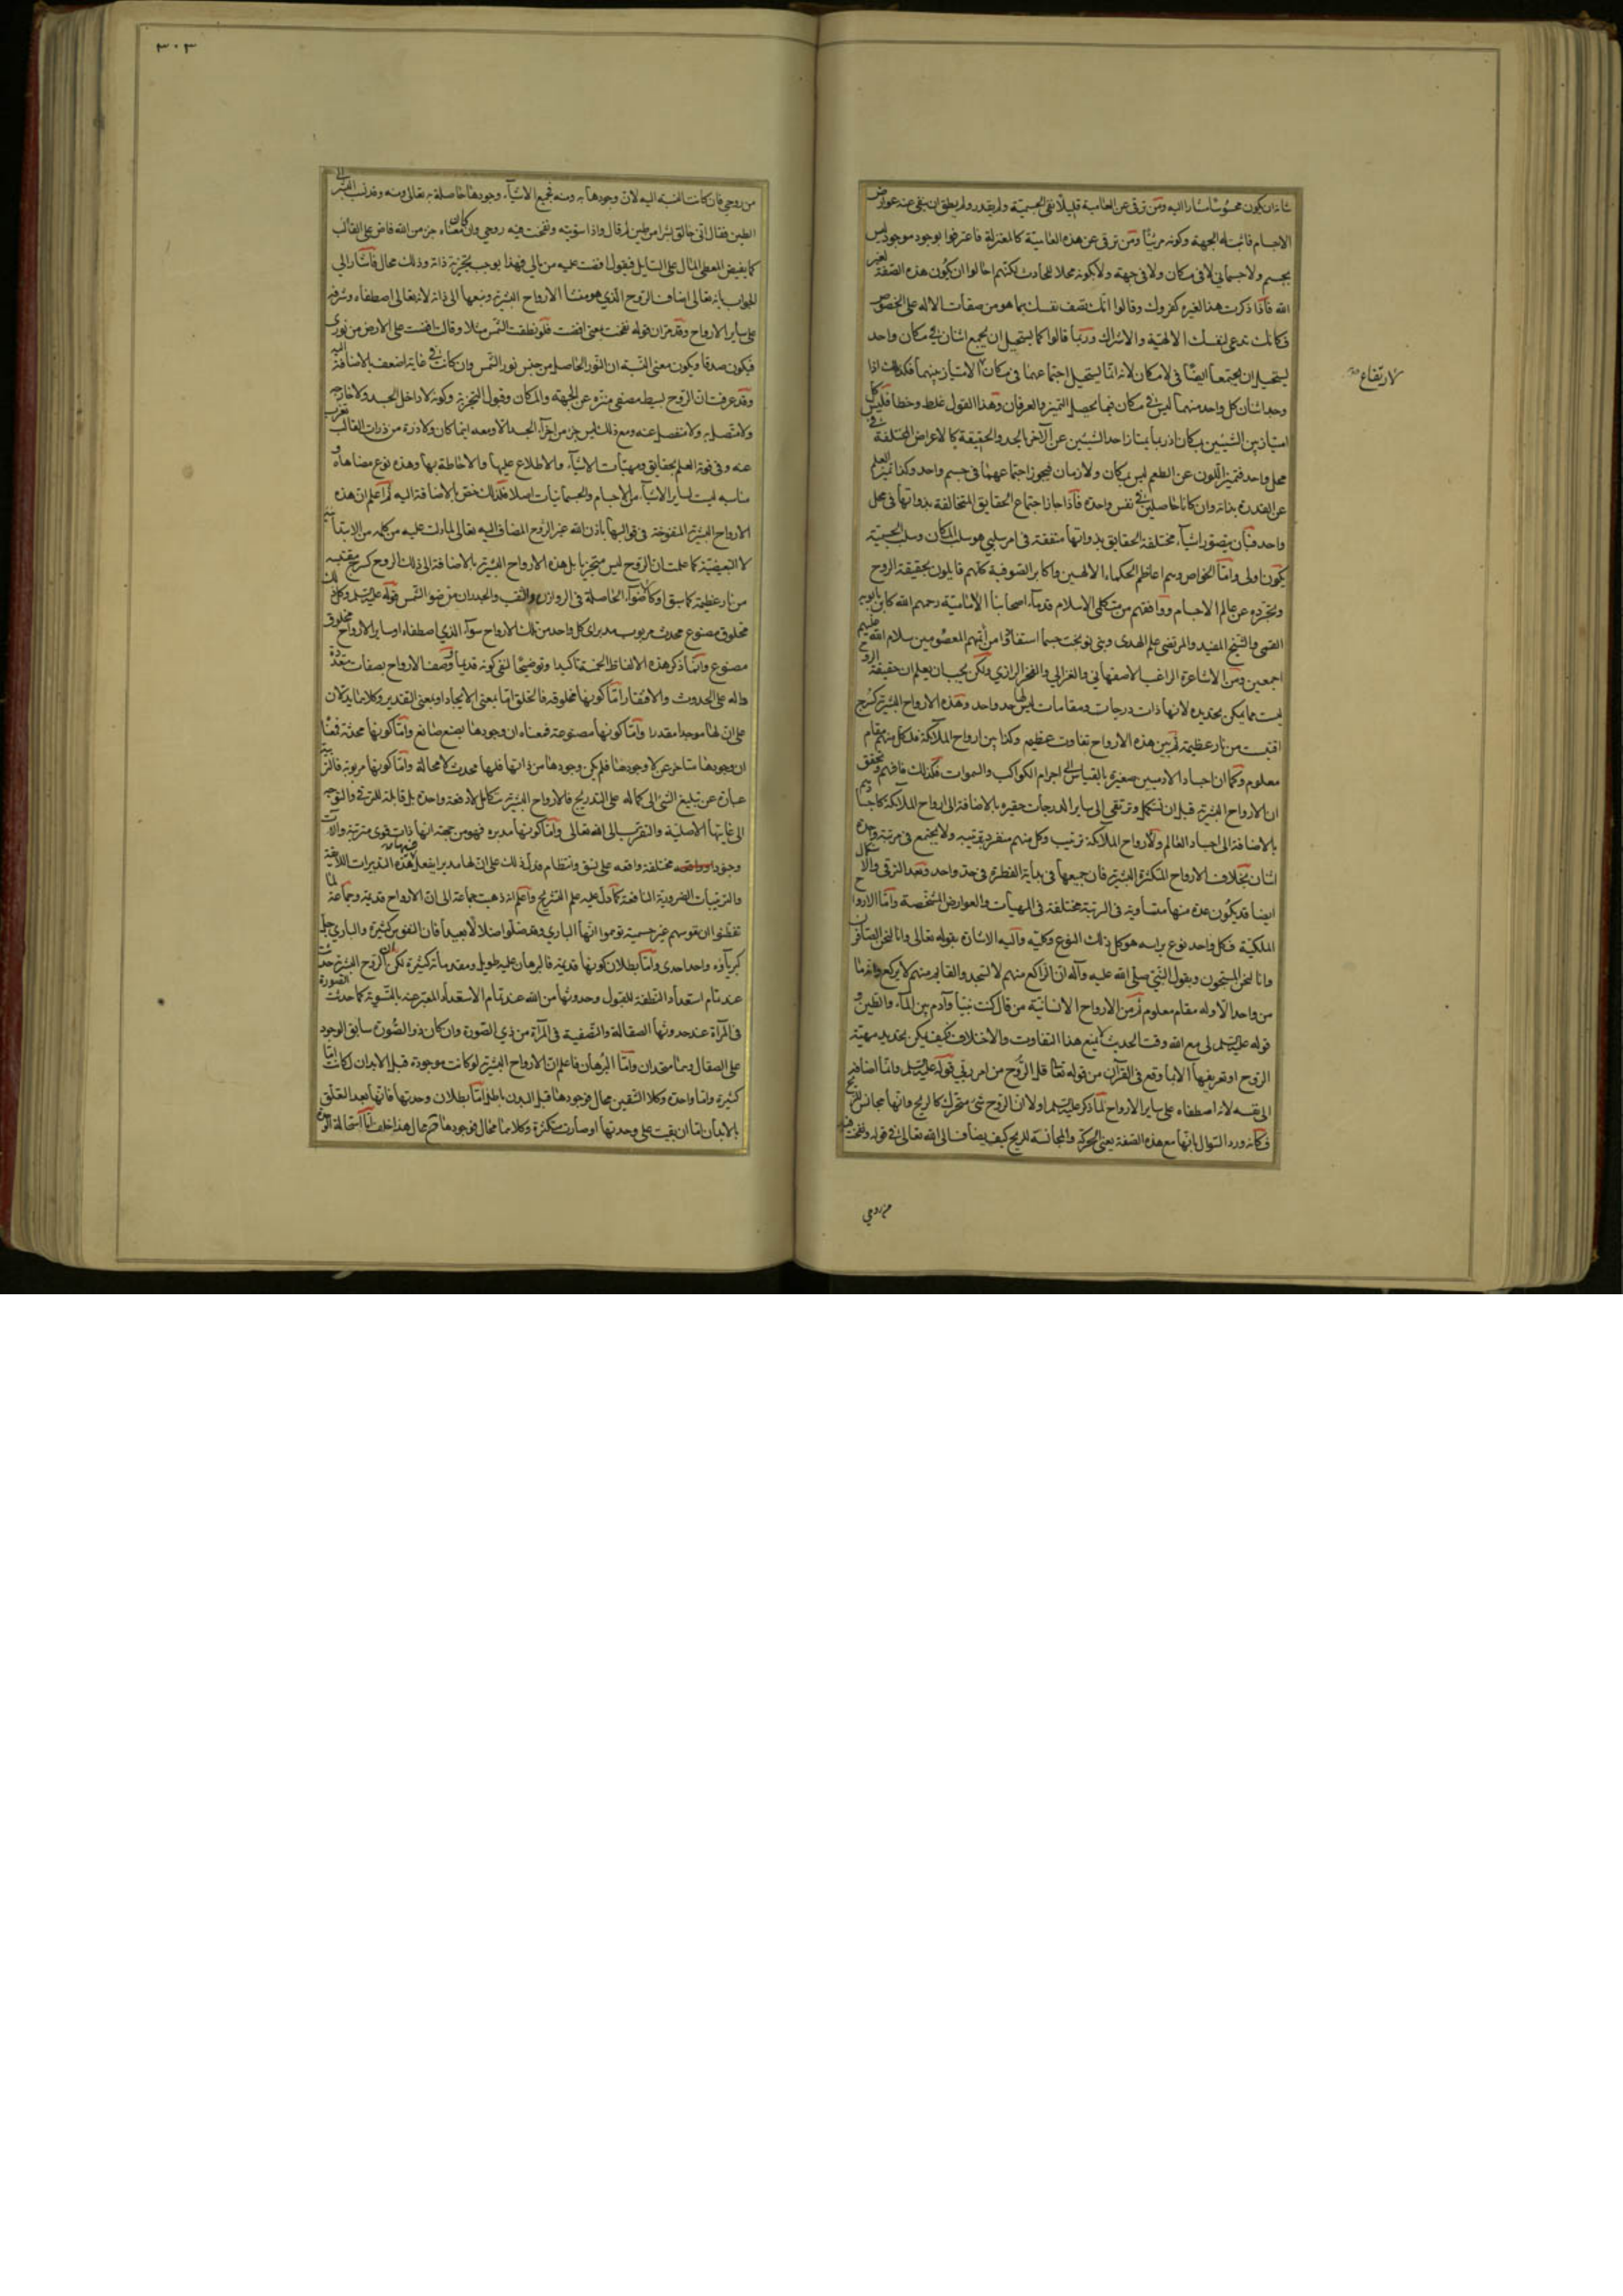 شانه ان يكون محسوسا مشارا اليه ومن ترقى عن العامية قليلا نفى الجسمية ولم يقدر ولم يطق ان ينفى عنه عوارض
الاجسام فاثبت له الجهة وكونه مرئيا ومن ترقى عن هذه العامية كالمعتزلة فاعترفوا بوجود موجود ليس
بجسم ولا جسمانى لا فى مكان ولا فى جهة ولا بكونه محلا للحوادث لكنهم احالوا ان يكون هذه الصفة لغير
الله فاذا ذكرت هذا لغيره كفروك وقالوا انك تصف نفسك بما هو من صفات الاله على الخصوص
فكانك تدعى لنفسك الالهية والاشراك وربما قالوا كما يستحيل ان يجمع اثنان فى مكان واحد
يستحيل ان يجتمعا ايضا فى لا مكان لانه انما يستحيل اجتماعهما فى مكان الامتياز بينهما فكذلك اذا
وجد اثنان كل واحد منهما ليس فى مكان فبما يحصل التميز والعرفان وهذا القول غلط وخطا فليس كل
امتياز بين الشيئين بمكان اذ ربما يمتاز احد الشيئين عن الاخر بالحد والحقيقة كالاعراض المختلفة فى
محل واحد فتميز اللون عن الطعم ليس بمكان ولا زمان فيجوز اجتماعهما فى جسم واحد وكذا تميز العلم
عن القدرة بذاته وان كانا حاصلين فى نفس واحدة فاذا جاز اجتماع الحقايق المتخالفة بذواتها فى محل
واحد فبان يتصور اشياء مختلفة الحقايق بذواتها متفقة فى امر سلبى هو سلب المكان وسلب الجسمية
يكون اولى واما الخواص وهم اعاظم الحكماء الالهيين واكابر الصوفية كلهم قايلون بحقيقة الروح
وتجرده عن عالم الاجسام ووافقهم من متكلمى الاسلام قدماء اصحابنا الامامية رحمهم الله كابن بابويه
القمى والشيخ المفيد والمرتضى علم الهدى وبنى نوبخت حسبما استفادوا من ائمتهم المعصومين سلام الله عليهم
اجمعين ومن الاشاعرة الراغب الاصفهانى والغزالى والفخر الرازى ولكن يجب ان يعلم ان حقيقة الروح
ليست مما يمكن تحديده لانها ذات درجات ومقامات ليس لها حد واحد وهذه الارواح البشرية كسرج
اقتبست من نار عظيمة ثم بين هذه الارواح تفاوت عظيم وكذا بين ارواح الملائكة فلكل منهم مقام
معلوم وكما ان اجساد الادميين صغيرة بالقياس الى اجرام الكواكب والسموات فكذلك فافهم وتحقق
ان الارواح البشرية قبل ان تستكمل وترتقى الى ساير الدرجات حقيرة بالاضافة الى ارواح الملائكة كاجسادهم
بالاضافة الى اجساد العالم ولارواح الملائكة ترتيب وكل منهم منفرد برتبته ولا يجتمع فى مرتبة واحدة
اثنان بخلاف الارواح المتكثرة البشرية فان جميعها فى بداية الفطرة فى حد واحد وبعد الترقى والاستكمال
ايضا قد يكون عدة منها متساوية فى الرتبة مختلفة فى الهيات والعوارض المشخصة واما الارواح
الملكية فكل واحد نوع براسه هو كل ذلك النوع وكليته واليه الاشارة بقوله تعالى وانا لنحن الصافون
وانا لنحن المسبحون وبقول النبى صلى الله عليه وآله ان الراكع منهم لا يسجد والقايم منهم لا يركع وانه ما
من واحد الا وله مقام معلوم ثم من الارواح الانسانية من قال كنت نبيا وآدم بين الماء والطين و
قوله عليه السلم لى مع الله وقت الحديث لا يمنع هذا التفاوت والاختلاف فكيف يمكن تحديد مهية
الروح او تعريفها الا بما وقع فى القرآن من قوله تعالى قل الروح من امر ربى قوله عليه السلم وانما اضافه
الى نفسه لانه اصطفاه على ساير الارواح لما ذكر عليه السلم اولا ان الروح شئ متحرك كالريح وانها مجانس للريح
فكانه ورد السوال بانها مع هذه الصفة يعنى الحركة والمجانسة للريح كيف يضاف الى الله تعالى فى قوله ونفخت فيه
من روحى
لارتفاع
٣٠٣
من روحى فان كانت النسبة اليه لان وجودها به ومنه فجميع الاشياء وجودها حاصلة به تعالى ومنه وقد نسب البشر الى
الطين فقال انى خالق بشرا من طين ثم قال واذا سويته ونفخت فيه من روحى وان كان معناه جزء من الله فاض على القالب
كما يفيض المعطى المال على السايل فيقول افضت عليه من مالى فهذا يوجب تجزية ذاته وذلك محال فاشار الى
الجواب بانه تعالى اضاف الروح الذى هو منشا الارواح البشرية ومنبعها الى ذاته لانه تعالى اصطفاه وشرفه
على ساير الارواح وقد مر ان قوله نفخت بمعنى افضت فلو نطقت الشمس مثلا وقالت افضت على الارض من نورى
فيكون صدقا ويكون معنى النسبة ان النور الحاصل من جنس نور الشمس وان كانت فى غاية الضعف بالاضافة اليه
وقد عرفت ان الروح بسيط مصفى منزه عن الجهة والمكان وقبول التجزية وكونه لا داخل الجسد ولا خارجه
ولا متصل به ولا منفصل عنه ومع ذلك ليس جزء من اجزاء الجسد الا ومعه اينما كان ولا ذرة من ذرات القالب تعزب
عنه وفى قوة العلم بحقايق ومهيات الاشياء والاطلاع عليها والاحاطة بها وهذه نوع مضاهاة و
مناسبة ليست لساير الاشياء من الاجسام والجسمانيات اصلا فلذلك خص بالاضافة اليه ثم اعلم ان هذه
الارواح البشرية المنفوخة فى قوالبها باذن الله غير الروح المضاف اليه تعالى لما دلت عليه من كلمة من الابتدائية
لا التبعيضية كما علمت ان الروح ليس متجزيا بل هذه الارواح البشرية بالاضافة الى ذلك الروح كسرج مقتبسة
من نار عظيمة كما سبق او كاضواء الحاصلة فى الروازن والثقب والجدران من ضوء الشمس قوله عليه السلم وكل ذلك
مخلوق مصنوع محدث مربوب مدبر اى كل واحد من تلك الارواح سواء الذى اصطفاه او ساير الارواح مخلوق
مصنوع وانما ذكر هذه الالفاظ الخمسة تاكيدا وتوضيحا لنفى كونه قديما ووصف الارواح بصفات متعددة
دالة على الحدوث والافتقار اما كونها مخلوقة فالخلق اما بمعنى الايجاد او بمعنى التقدير وكلاهما يدلان
على ان لها موجدا مقدرا واما كونها مصنوعة فمعناه ان وجودها بصنع صانع واما كونها محدثة فمعناه
ان وجودها متاخر عن لا وجودها فلم يكن وجودها من ذاتها فلها محدث لا محالة واما كونها مربوبة فالتربية
عبارة عن تبليغ الشئ الى كماله على التدريج فالارواح البشرية تتكامل لا دفعة واحدة بل قابلة للترقى والتوجه
الى غايتها الاصلية والتقرب الى الله تعالى واما كونها مدبرة فهو من جهة انها ذات قوى مترتبة وآلات
وجنود مختلفة واقعة على نسق وانتظام فدل ذلك على ان لها مدبرا يفعل هذه التدبيرات اللايقة
والترتيبات الضرورية النافعة كما دل عليه علم التشريح واعلم انه ذهبت جماعة الى ان الارواح قديمة وجماعة لما
تفطنوا ان نفوسهم غير جسمية توهموا انها البارى وقد ضلوا ضلالا بعيدا فان النفوس كثيرة والبارى جل
كبرياؤه واحد احدى واما بطلان كونها قديمة فالبرهان عليه طويل ومقدماته كثيرة لكن الروح البشرية حدثت
عند تمام استعداد النطفة للقبول وحدوثها من الله عند تمام الاستعداد المعبر عنه بالتسوية كما حدثت الصورة
فى المرآة عند حدوثها الصقالة والتصفية فى المرآة من ذى الصورة وان كان ذو الصورة سابق الوجود
على الصقال وهما متحدان واما البرهان فاعلم ان الارواح البشرية لو كانت موجودة قبل الابدان لكانت اما
كثيرة واما واحدة وكلا الشقين محال فوجودها قبل البدن باطل اما بطلان وحدتها فانها بعد التعلق
بالابدان اما ان بقيت على وحدتها او صارت متكثرة وكلاهما محال فوجودها محال هذا خلف اما استحالة الوحدة